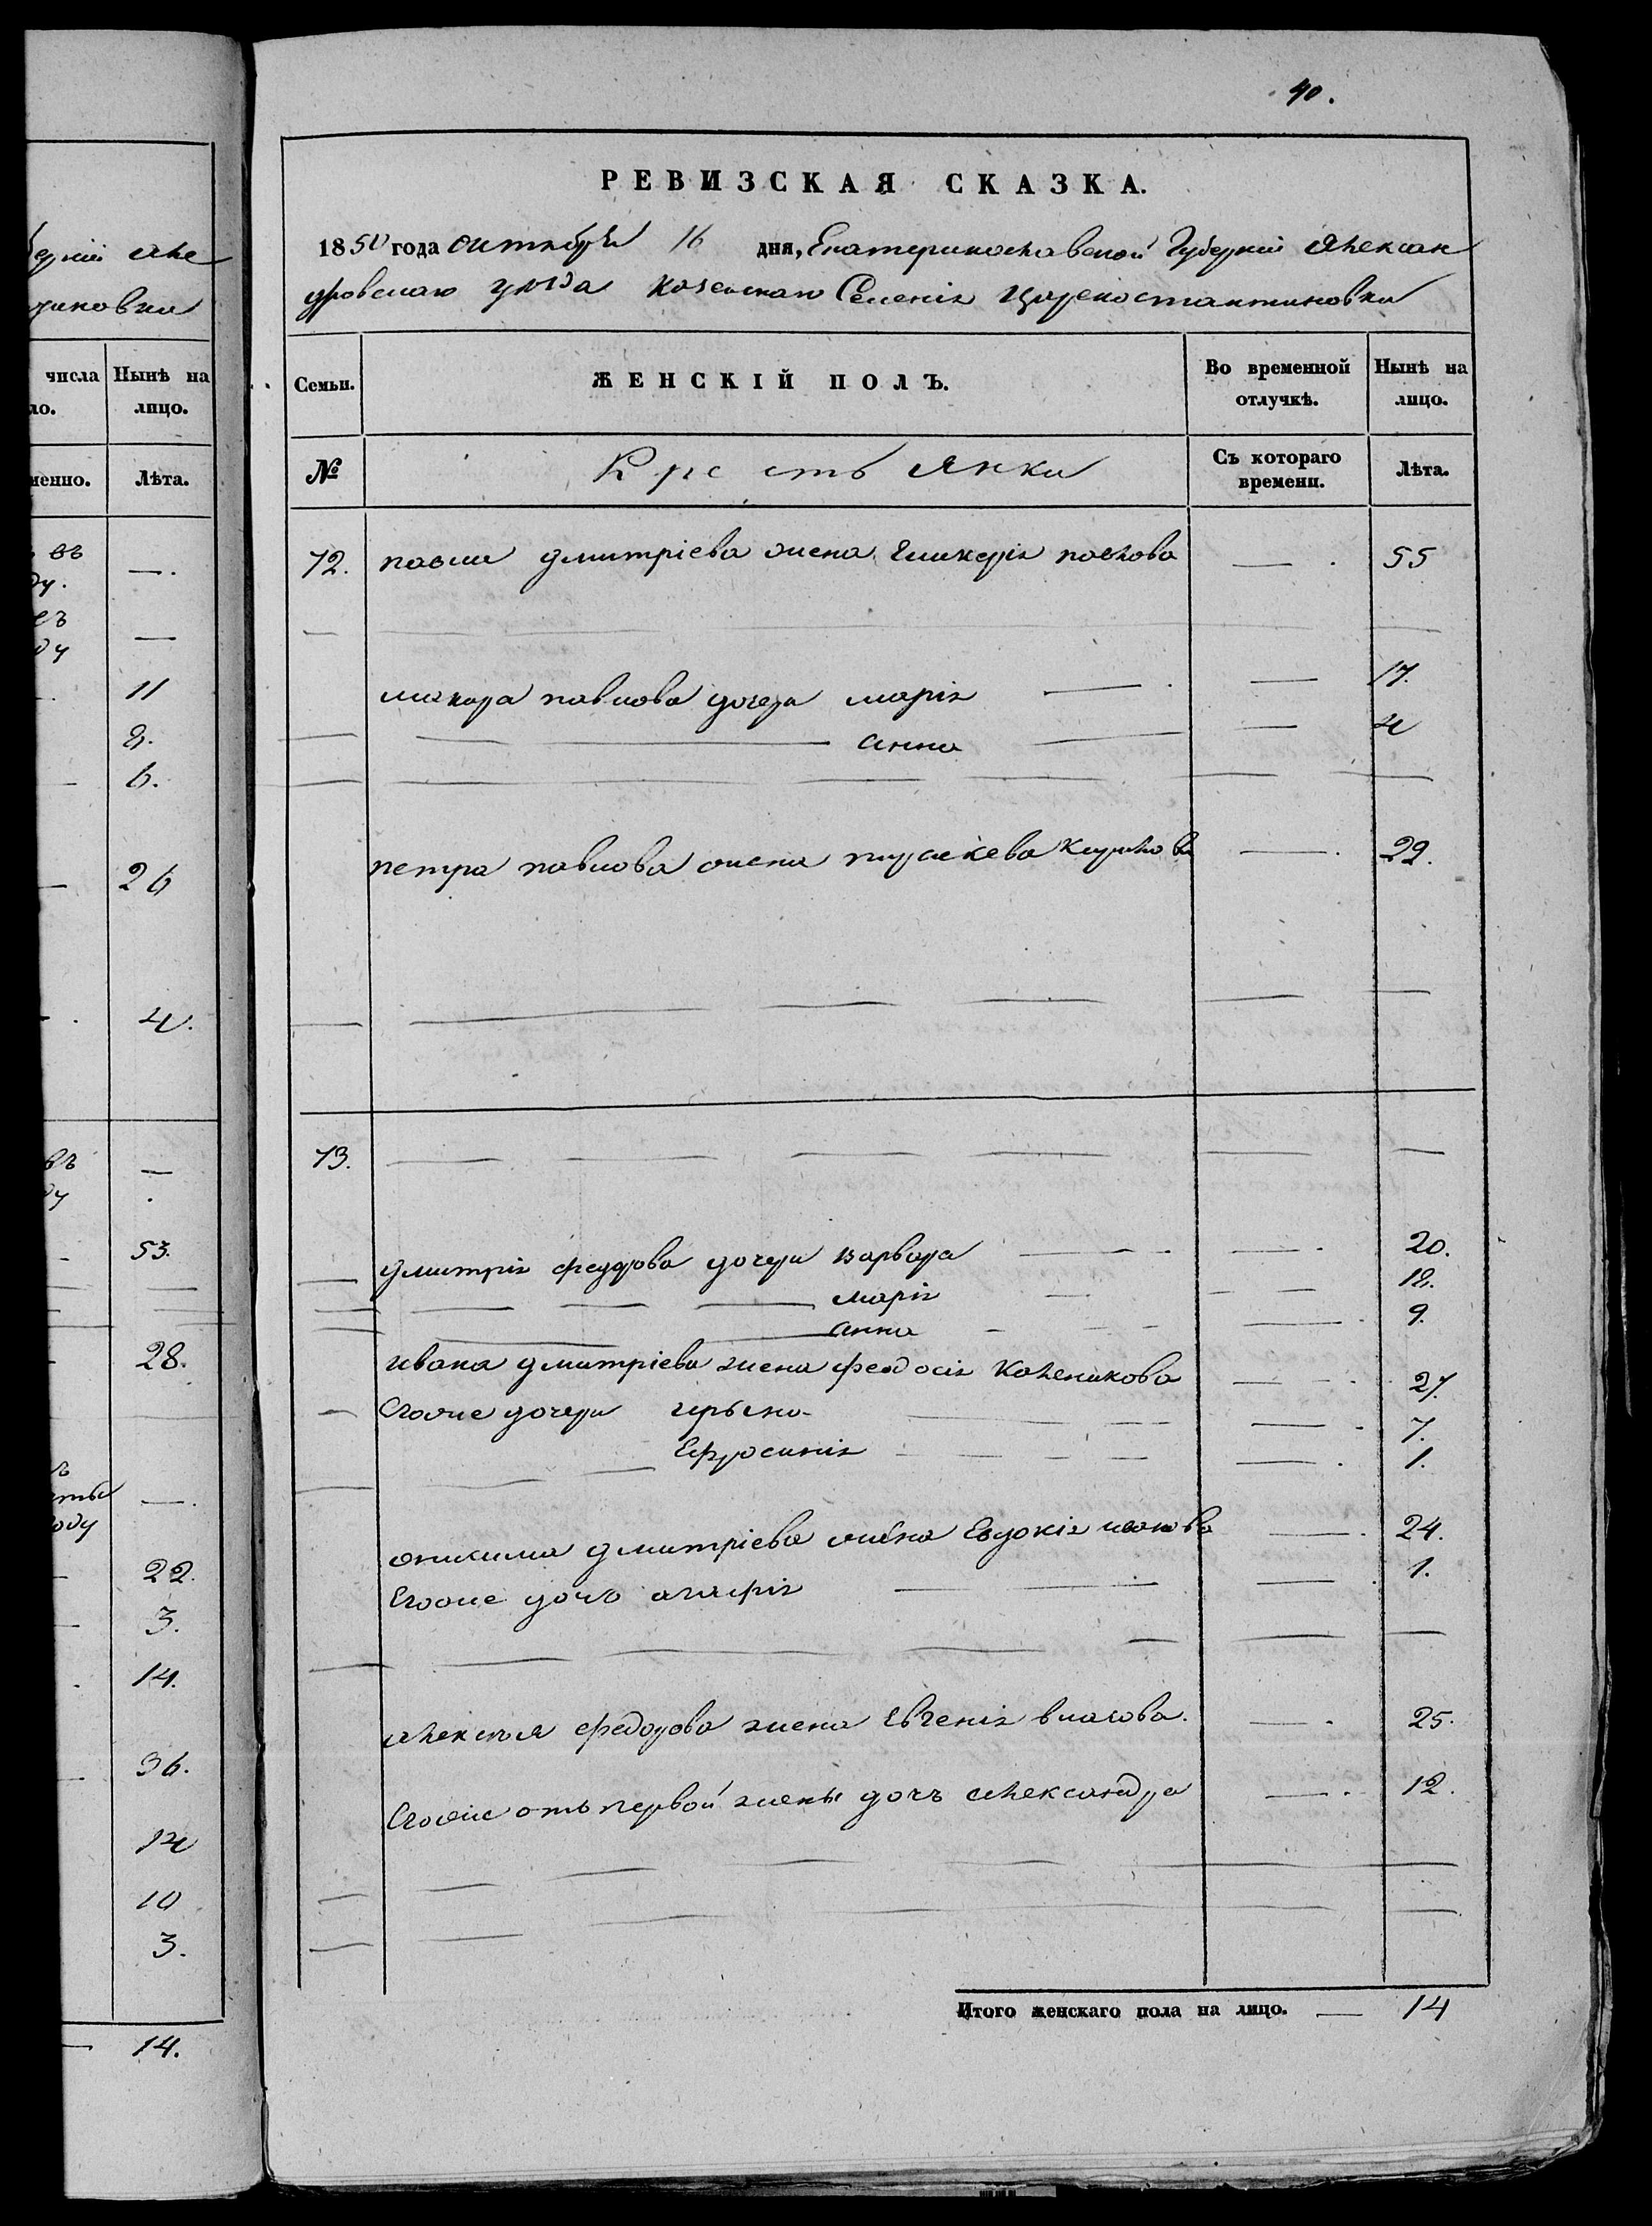 40.
РЕВИЗСКАЯ СКАЗКА.
1850 года октября 16 дня, Екатеринославской Губерніи Алексан
дровскаго уезда казенного Селенія Царекостантиновки
Семьи.
ЖЕНСКІЙ ПОЛЪ.
Во временной отлучкѣ.
Нынѣ на лицо.
№
Крестьянки
Съ котораго времени.
Лѣта.
72. павла дмитріева жена Гликерія павлова — . 55
макара павлова дочери марія — . — 17.
— анна — — 4
петра павлова жена параскева — . 22.
73.
дмитрія федорова дочери варвара — — . 20.
— марія — — 18.
— анна — — . 9.
ивана дмитріева жена феодосія Коленикова — . 27.
Егоже дочери ирына — — . 7.
— Ефросинія — — . 1.
онисима дмитріева жена Евдокія иванова — . 24.
Егоже дочь агафія — — . 1.
алексѣя федорова жена Евгенія власова. — . 25.
Егоже отъ первой жены дочъ александра — . 12.
Итого женскаго пола на лицо. — 14
числа
Нынѣ на
лицо.
Лѣта.
въ
11
8.
6.
26
4.
въ
53.
28.
22.
3.
14.
36.
10
3.
14.